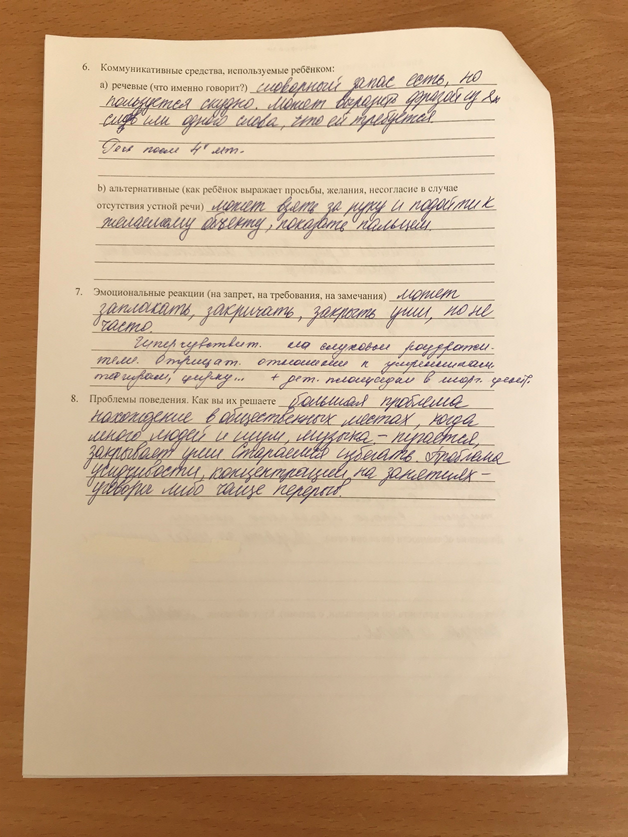 6. Коммуникативные средства, используемые ребёнком:
a) речевые (что именно говорит?) словарный запас есть, но
пользуется скудно. Может выразить фразой из 2х
слов или одного слова, что ей требуется.
Речь после 4х лет.
b) альтернативные (как ребёнок выражает просьбы, желания, несогласие в случае
отсутствия устной речи) может взять за руку и подойти к
желаемому объекту, показать пальцем.
7. Эмоциональные реакции (на запрет, на требования, на замечания) может
заплакать, закричать, закрыть уши, но не
часто.
Гиперчувствит. на слуховые раздражи-
тели. Отрицат. отношение к утренникам,
театрам, цирку... + дет. площадкам в
8. Проблемы поведения. Как вы их решаете большая проблема
нахождение в общественных местах, когда
много людей и шум, музыка - пугается,
закрывает уши. Стараемся избегать. Проблема
усидчивости, концентрации на занятиях -
уговоры либо чаще перерыв.